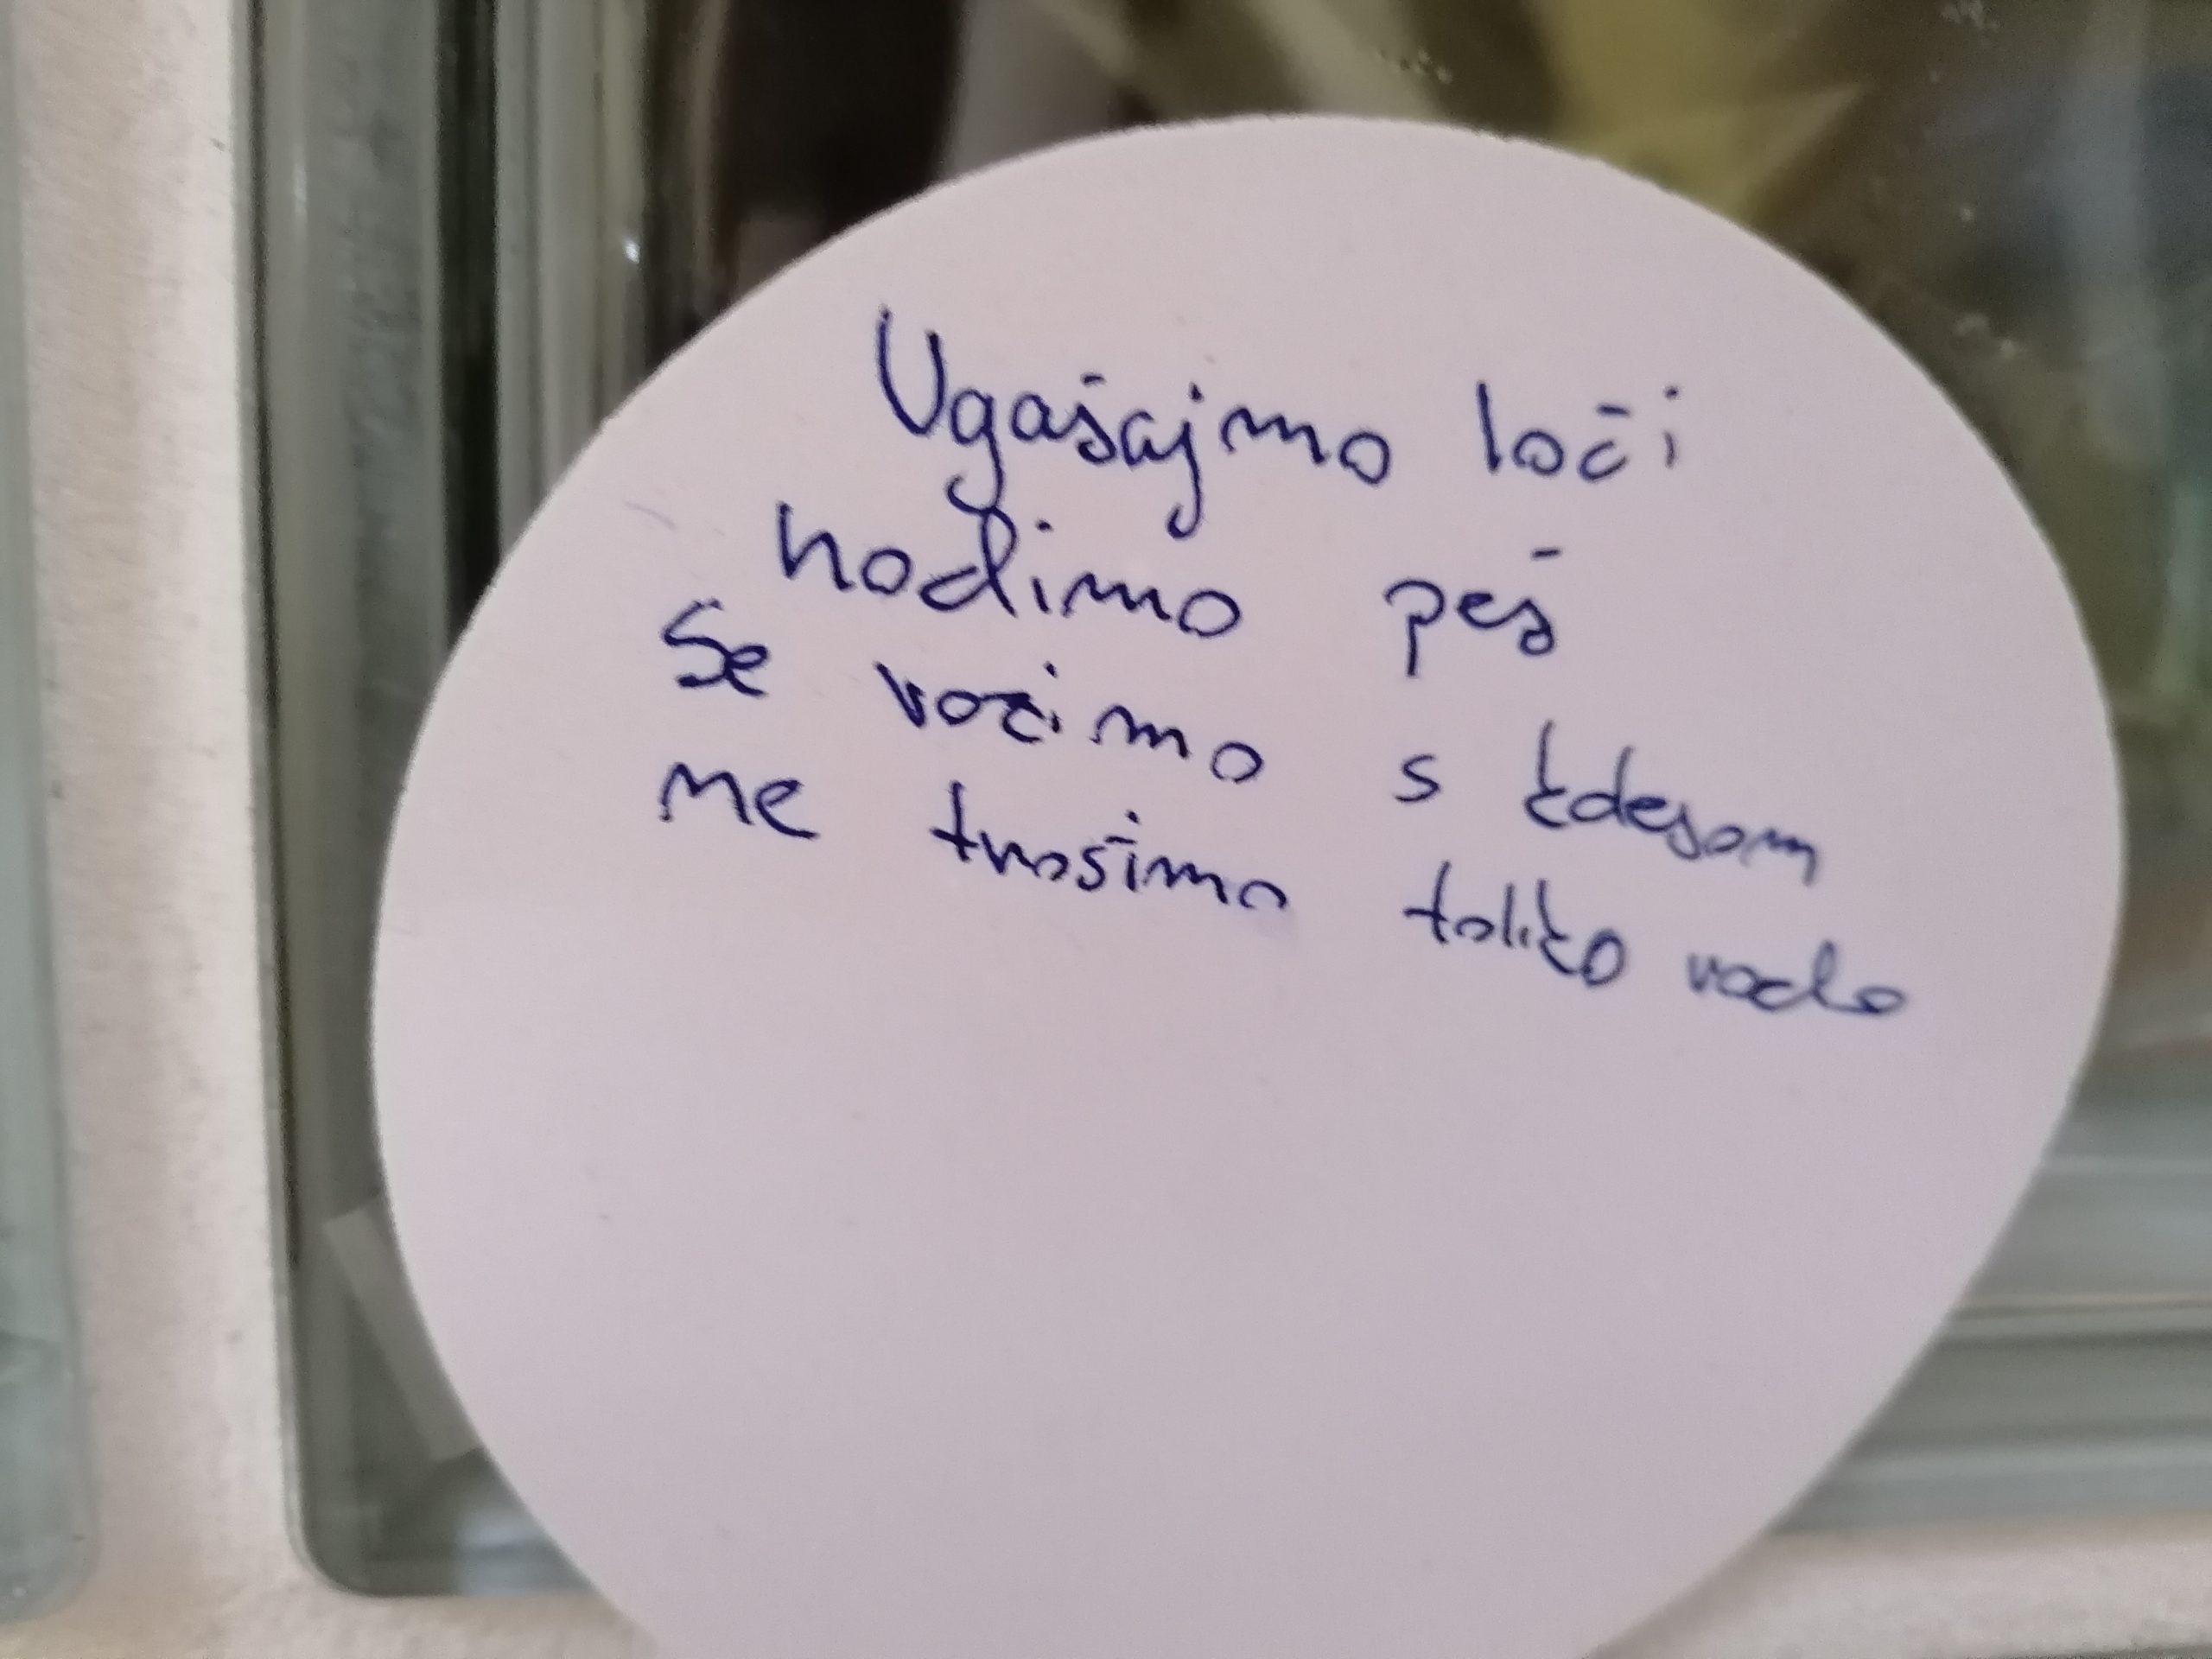 Ugašajmo loči
hodimo peš
Se vozimo s kdesom
ne trošimo toliko vode